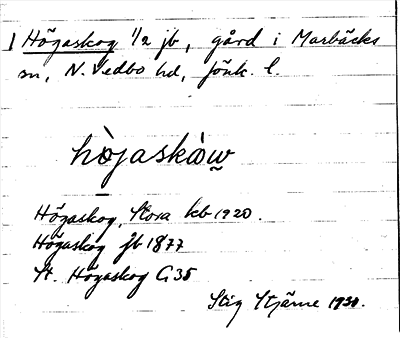 1 Högaskog 1/2 jb, gård i Marbäcks
sn, N. Vedbo hd, Jönk. l.
hòjaskòw
Högaskog, Stora kb 1920.
Högaskog jb 1877
St. Högaskog G 35
Stig Stjärne 1930.